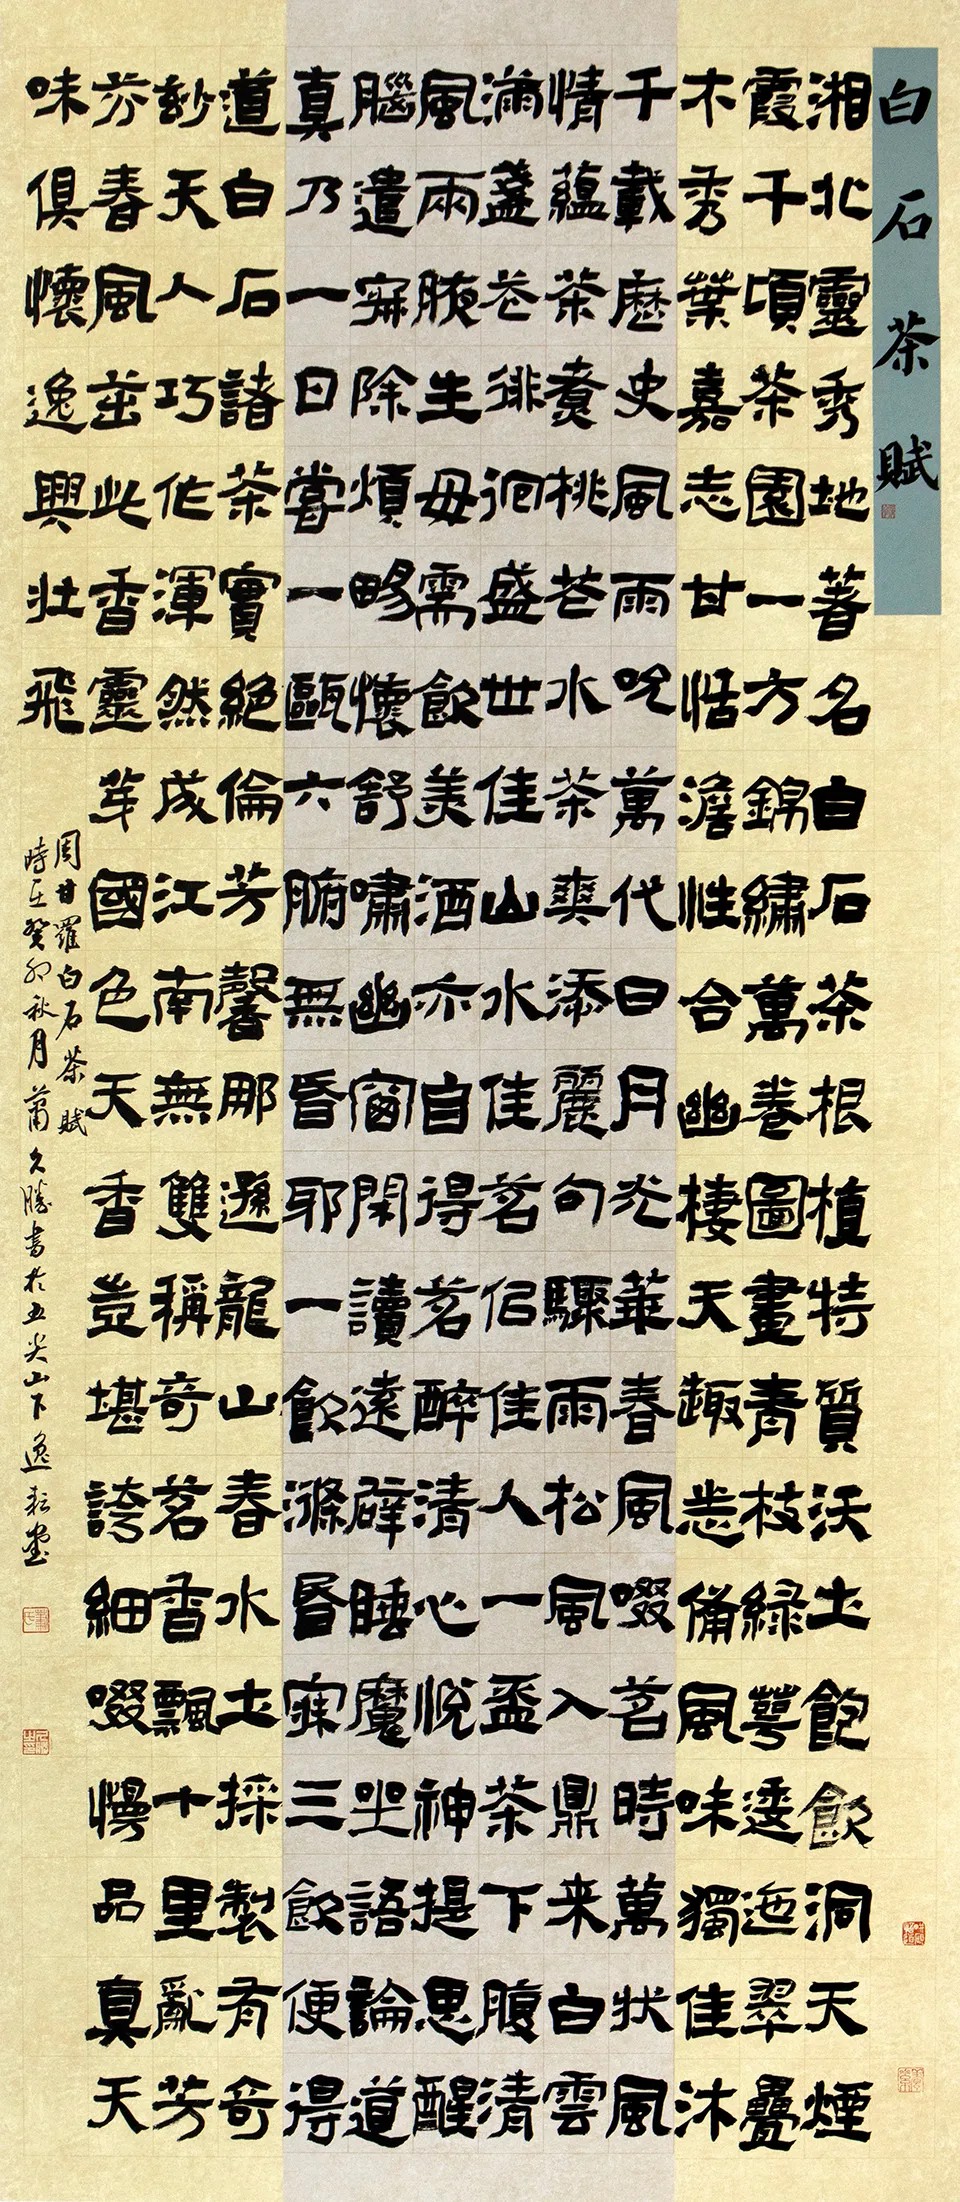 白石茶賦
湘北靈秀地著名白石茶根植特質沃土飽飲洞天煙
霞千頃茶園一方錦繡萬卷圖畫青枝緑萼逶迤翠疊
木秀葉嘉志甘恬澹性合幽棲天趣悉備風味獨佳沐
千載歷史風雨吮萬代日月光華春風啜茗時萬狀風
情蘊茶煮桃花水茶爽添麗句驟雨松風入鼎来白雲
滿盞花徘徊盛世佳山水佳茗侶佳人一盃茶下腹清
風兩腋生毋需飲美酒亦自得茗醉清心悅神提思醒
腦遣寐除煩暢懷舒嘯幽窗閑讀遠辟睡魔坐語論道
真乃一日嘗一甌六腑無昏耶一飲滌昏寐三飲便得
道白石諸茶實絕倫芳馨那遜龍山春水土採製有奇
玅天人巧作渾然成江南無雙稱奇茗香飄十里亂芳
芬春風茁此香靈芽國色天香豈堪誇細啜慢品真天
味俱懷逸興壯飛
周甘羅白石茶賦
時在癸卯秋月蕭久勝書於五尖山下逸耘堂